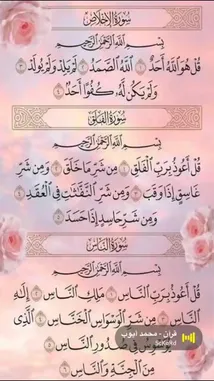 سُورَةُ الإِخْلَاصِ
بِسْمِ اللَّهِ الرَّحْمَٰنِ الرَّحِيمِ
قُلْ هُوَ اللَّهُ أَحَدٌ ۝١ اللَّهُ الصَّمَدُ ۝٢ لَمْ يَلِدْ وَلَمْ يُولَدْ ۝٣
وَلَمْ يَكُن لَّهُ كُفُوًا أَحَدٌ ۝٤
سُورَةُ الفَلَقِ
بِسْمِ اللَّهِ الرَّحْمَٰنِ الرَّحِيمِ
قُلْ أَعُوذُ بِرَبِّ الْفَلَقِ ۝١ مِن شَرِّ مَا خَلَقَ ۝٢ وَمِن شَرِّ
غَاسِقٍ إِذَا وَقَبَ ۝٣ وَمِن شَرِّ النَّفَّاثَاتِ فِي الْعُقَدِ ۝٤
وَمِن شَرِّ حَاسِدٍ إِذَا حَسَدَ ۝٥
سُورَةُ النَّاسِ
بِسْمِ اللَّهِ الرَّحْمَٰنِ الرَّحِيمِ
قُلْ أَعُوذُ بِرَبِّ النَّاسِ ۝١ مَلِكِ النَّاسِ ۝٢ إِلَٰهِ
النَّاسِ ۝٣ مِن شَرِّ الْوَسْوَاسِ الْخَنَّاسِ ۝٤ الَّذِي
قرآن - محمد ايوب
يُوَسْوِسُ فِي صُدُورِ النَّاسِ ۝٥
مِنَ الْجِنَّةِ وَالنَّاسِ ۝٦